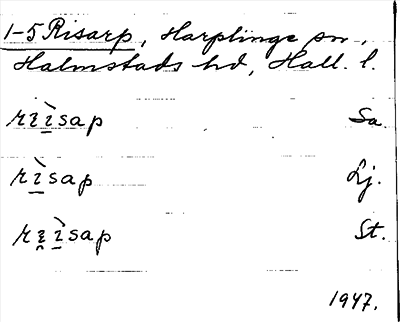 1-5 Risarp, Harplinge sn,
Halmstads hd, Hall. l.
rɪì̠sap Sa.
rì̠sap Lj.
rɪ̯ì̠sap St.
1947.